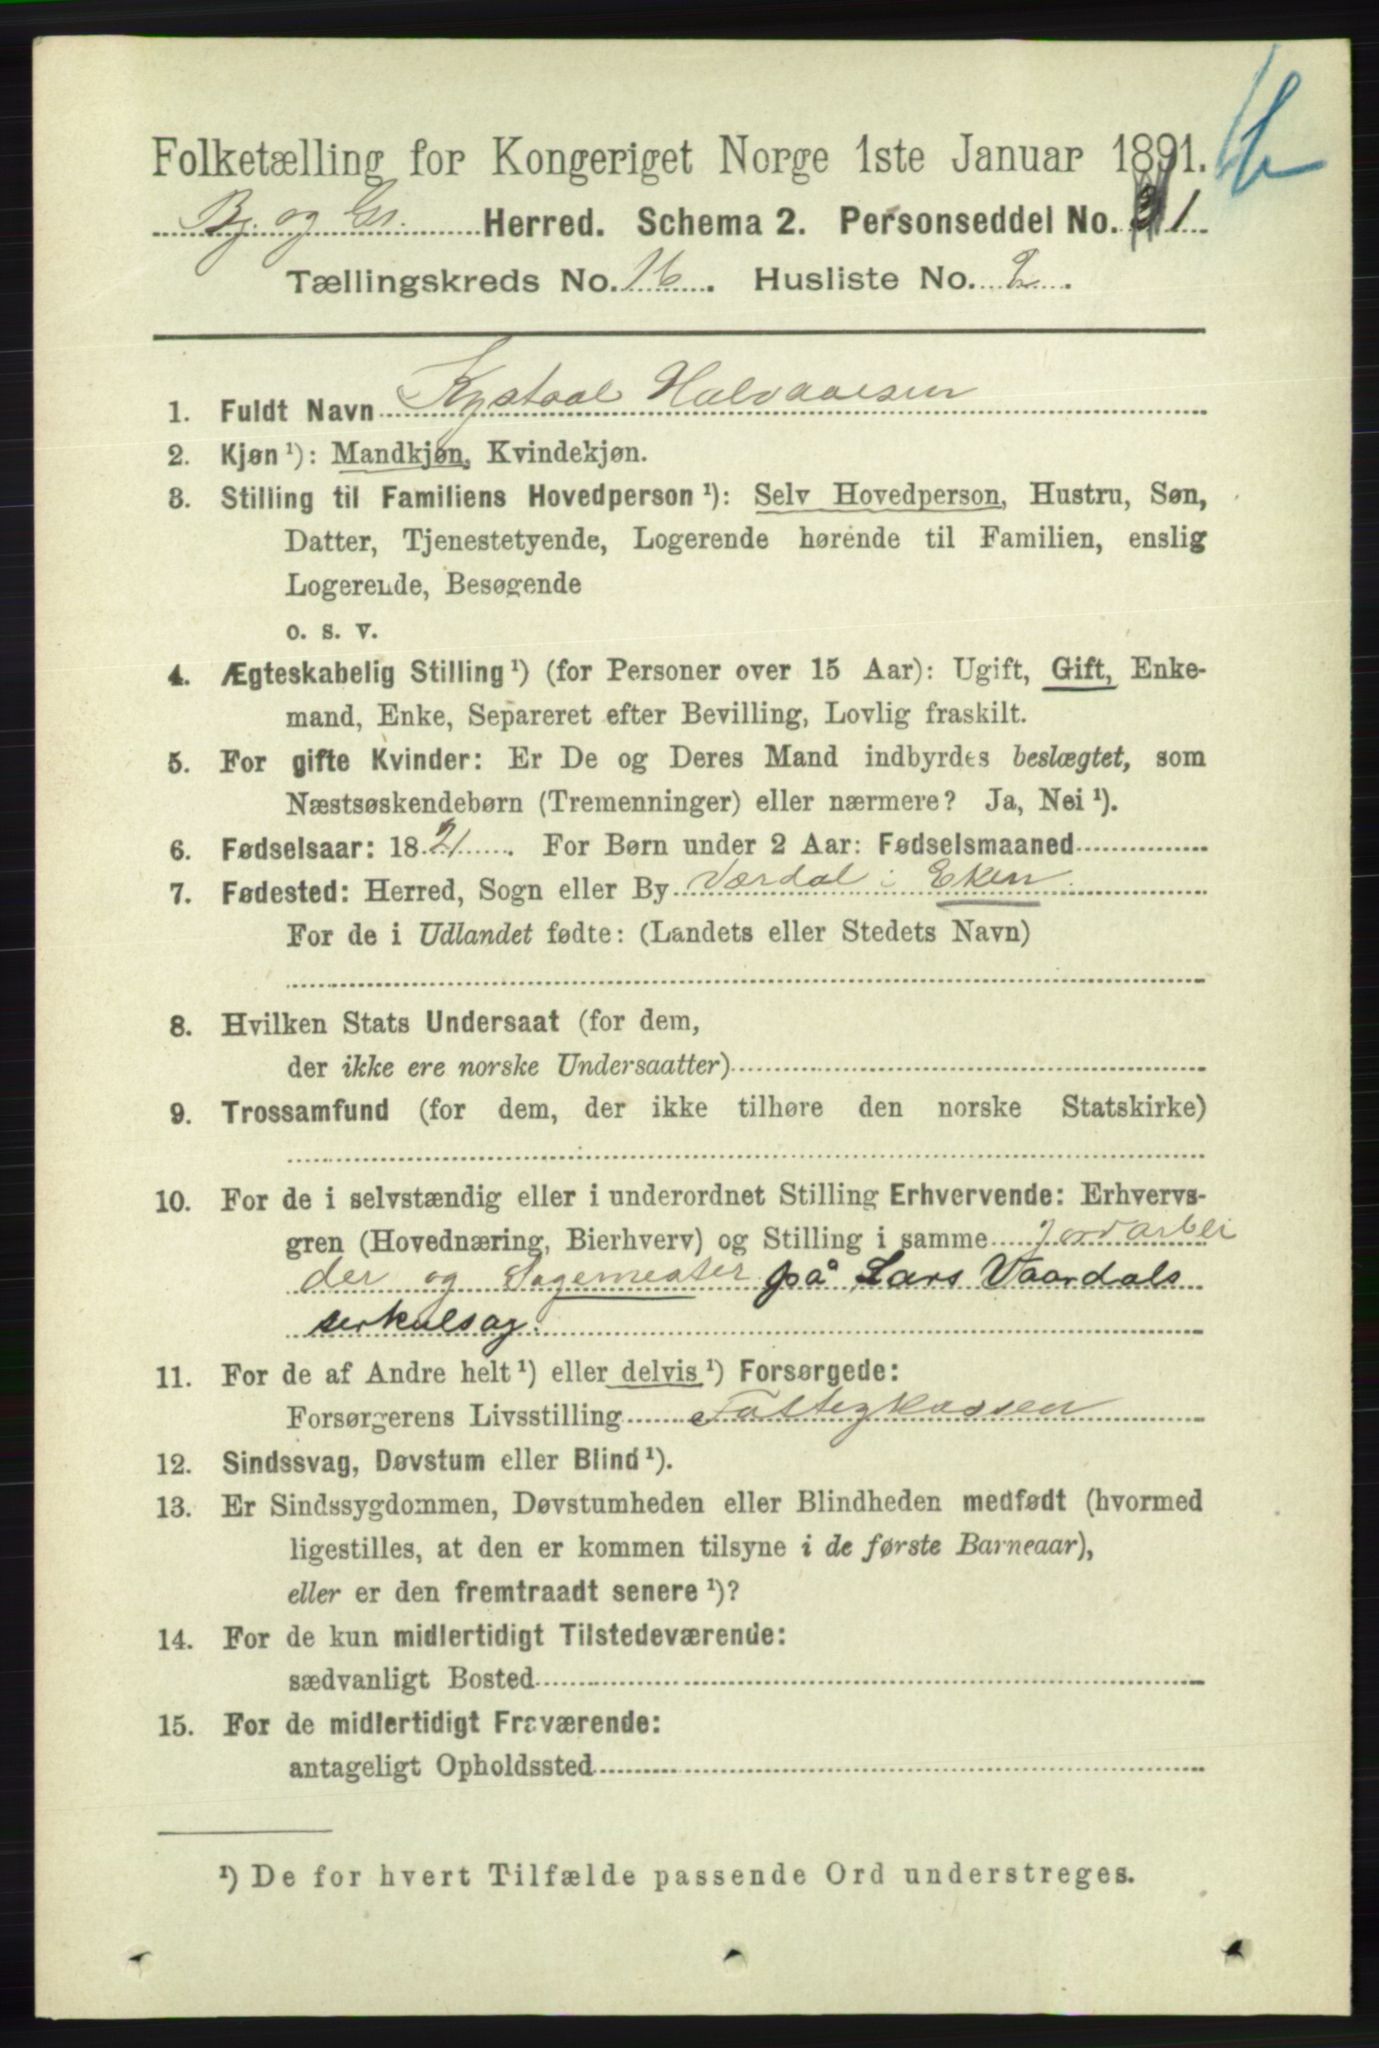 Folketælling for Kongeriget Norge 1ste Januar 1891.
Bj. og Gr. Herred. Schema 2. Personseddel No. 1
Tællingskreds No. 16. Husliste No. 2.
1. Fuldt Navn Kystaal Halvaalsen
2. Kjøn ¹): Mandkjøn, Kvindekjøn.
3. Stilling til Familiens Hovedperson ¹): Selv Hovedperson, Hustru, Søn,
Datter, Tjenestetyende, Logerende hørende til Familien, enslig
Logerende, Besøgende
o. s. v.
4. Ægteskabelig Stilling ¹) (for Personer over 15 Aar): Ugift, Gift, Enke-
mand, Enke, Separeret efter Bevilling, Lovlig fraskilt.
5. For gifte Kvinder: Er De og Deres Mand indbyrdes beslægtet, som
Næstsøskendebørn (Tremenninger) eller nærmere? Ja, Nei ¹).
6. Fødselsaar: 1821. For Børn under 2 Aar: Fødselsmaaned
7. Fødested: Herred, Sogn eller By Værdal i Eken
For de i Udlandet fødte: (Landets eller Stedets Navn)
8. Hvilken Stats Undersaat (for dem,
der ikke ere norske Undersaatter)
9. Trossamfund (for dem, der ikke tilhøre den norske Statskirke)
10. For de i selvstændig eller i underordnet Stilling Erhvervende: Erhvervs-
gren (Hovednæring, Bierhverv) og Stilling i samme Jordarbei
der og Sagemester på Lars Vaardals
serkulsag.
11. For de af Andre helt ¹) eller delvis ¹) Forsørgede:
Forsørgerens Livsstilling Fattigkassen
12. Sindssvag, Døvstum eller Blind ¹).
13. Er Sindssygdommen, Døvstumheden eller Blindheden medfødt (hvormed
ligestilles, at den er kommen tilsyne i de første Barneaar),
eller er den fremtraadt senere ¹)?
14. For de kun midlertidigt Tilstedeværende:
sædvanligt Bosted
15. For de midlertidigt Fraværende:
antageligt Opholdssted
¹) De for hvert Tilfælde passende Ord understreges.